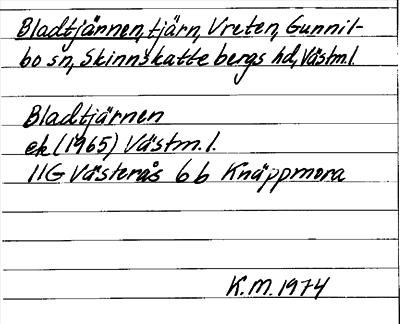 Bladtjärnen, tjärn, Vreten, Gunnil-
bo sn, Skinnskattebergs hd, Västm.l.
Bladtjärnen
ek (1965) Västm.l.
11G Västerås 6b Knäppmora
K.M. 1974